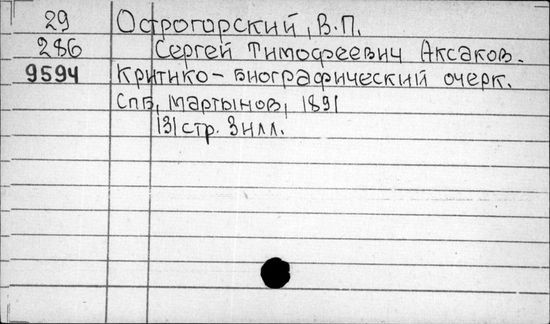 29 Острогорский, В.П.
286 Сергей Тимофеевич Аксаков.
9594 Критико-биографический очерк.
Спб, Мартынов, 1891
131 стр. 3 илл.